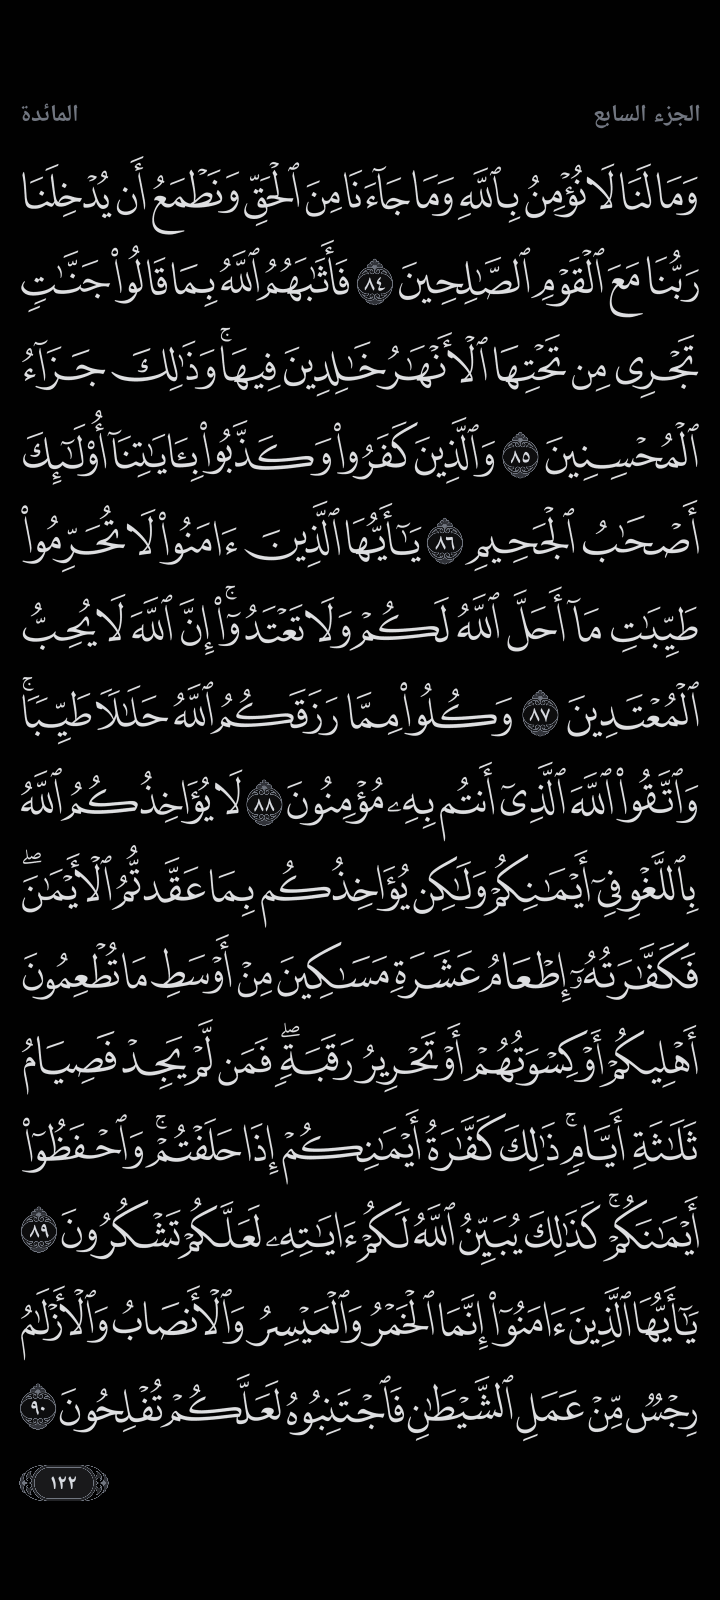 الجزء السابع
المائدة
وَمَا لَنَا لَا نُؤۡمِنُ بِٱللَّهِ وَمَا جَآءَنَا مِنَ ٱلۡحَقِّ وَنَطۡمَعُ أَن يُدۡخِلَنَا
رَبُّنَا مَعَ ٱلۡقَوۡمِ ٱلصَّٰلِحِينَ ٨٤ فَأَثَٰبَهُمُ ٱللَّهُ بِمَا قَالُواْ جَنَّٰتٖ
تَجۡرِي مِن تَحۡتِهَا ٱلۡأَنۡهَٰرُ خَٰلِدِينَ فِيهَاۚ وَذَٰلِكَ جَزَآءُ
ٱلۡمُحۡسِنِينَ ٨٥ وَٱلَّذِينَ كَفَرُواْ وَكَذَّبُواْ بِـَٔايَٰتِنَآ أُوْلَٰٓئِكَ
أَصۡحَٰبُ ٱلۡجَحِيمِ ٨٦ يَٰٓأَيُّهَا ٱلَّذِينَ ءَامَنُواْ لَا تُحَرِّمُواْ
طَيِّبَٰتِ مَآ أَحَلَّ ٱللَّهُ لَكُمۡ وَلَا تَعۡتَدُوٓاْۚ إِنَّ ٱللَّهَ لَا يُحِبُّ
ٱلۡمُعۡتَدِينَ ٨٧ وَكُلُواْ مِمَّا رَزَقَكُمُ ٱللَّهُ حَلَٰلٗا طَيِّبٗاۚ
وَٱتَّقُواْ ٱللَّهَ ٱلَّذِيٓ أَنتُم بِهِۦ مُؤۡمِنُونَ ٨٨ لَا يُؤَاخِذُكُمُ ٱللَّهُ
بِٱللَّغۡوِ فِيٓ أَيۡمَٰنِكُمۡ وَلَٰكِن يُؤَاخِذُكُم بِمَا عَقَّدتُّمُ ٱلۡأَيۡمَٰنَۖ
فَكَفَّٰرَتُهُۥٓ إِطۡعَامُ عَشَرَةِ مَسَٰكِينَ مِنۡ أَوۡسَطِ مَا تُطۡعِمُونَ
أَهۡلِيكُمۡ أَوۡ كِسۡوَتُهُمۡ أَوۡ تَحۡرِيرُ رَقَبَةٖۖ فَمَن لَّمۡ يَجِدۡ فَصِيَامُ
ثَلَٰثَةِ أَيَّامٖۚ ذَٰلِكَ كَفَّٰرَةُ أَيۡمَٰنِكُمۡ إِذَا حَلَفۡتُمۡۚ وَٱحۡفَظُوٓاْ
أَيۡمَٰنَكُمۡۚ كَذَٰلِكَ يُبَيِّنُ ٱللَّهُ لَكُمۡ ءَايَٰتِهِۦ لَعَلَّكُمۡ تَشۡكُرُونَ ٨٩
يَٰٓأَيُّهَا ٱلَّذِينَ ءَامَنُوٓاْ إِنَّمَا ٱلۡخَمۡرُ وَٱلۡمَيۡسِرُ وَٱلۡأَنصَابُ وَٱلۡأَزۡلَٰمُ
رِجۡسٞ مِّنۡ عَمَلِ ٱلشَّيۡطَٰنِ فَٱجۡتَنِبُوهُ لَعَلَّكُمۡ تُفۡلِحُونَ ٩٠
١٢٢